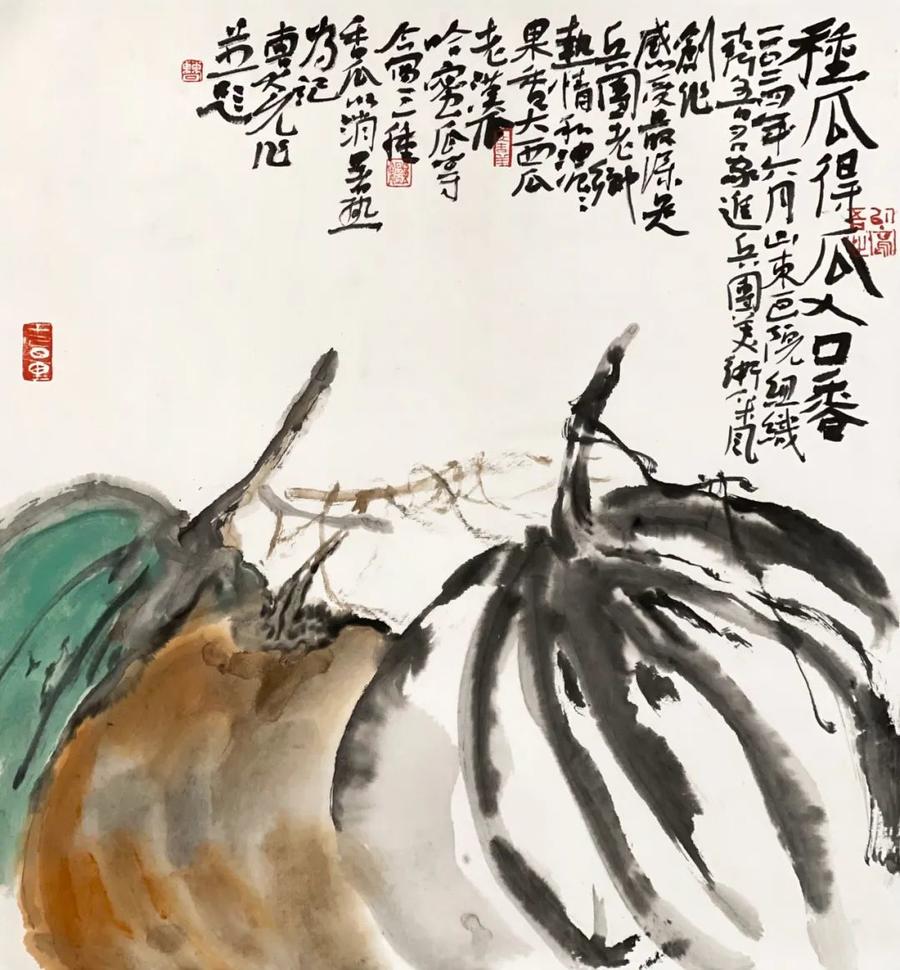 種瓜得瓜入口香
二〇二四年六月山東画院組織
齐鲁名家進兵團美術采風
創作
感受最深是
兵團老鄉
熱情和濃濃
果香大西瓜
老漢瓜
哈蜜瓜等
今寫三種
香瓜以消暑熱
為記
曹
並題